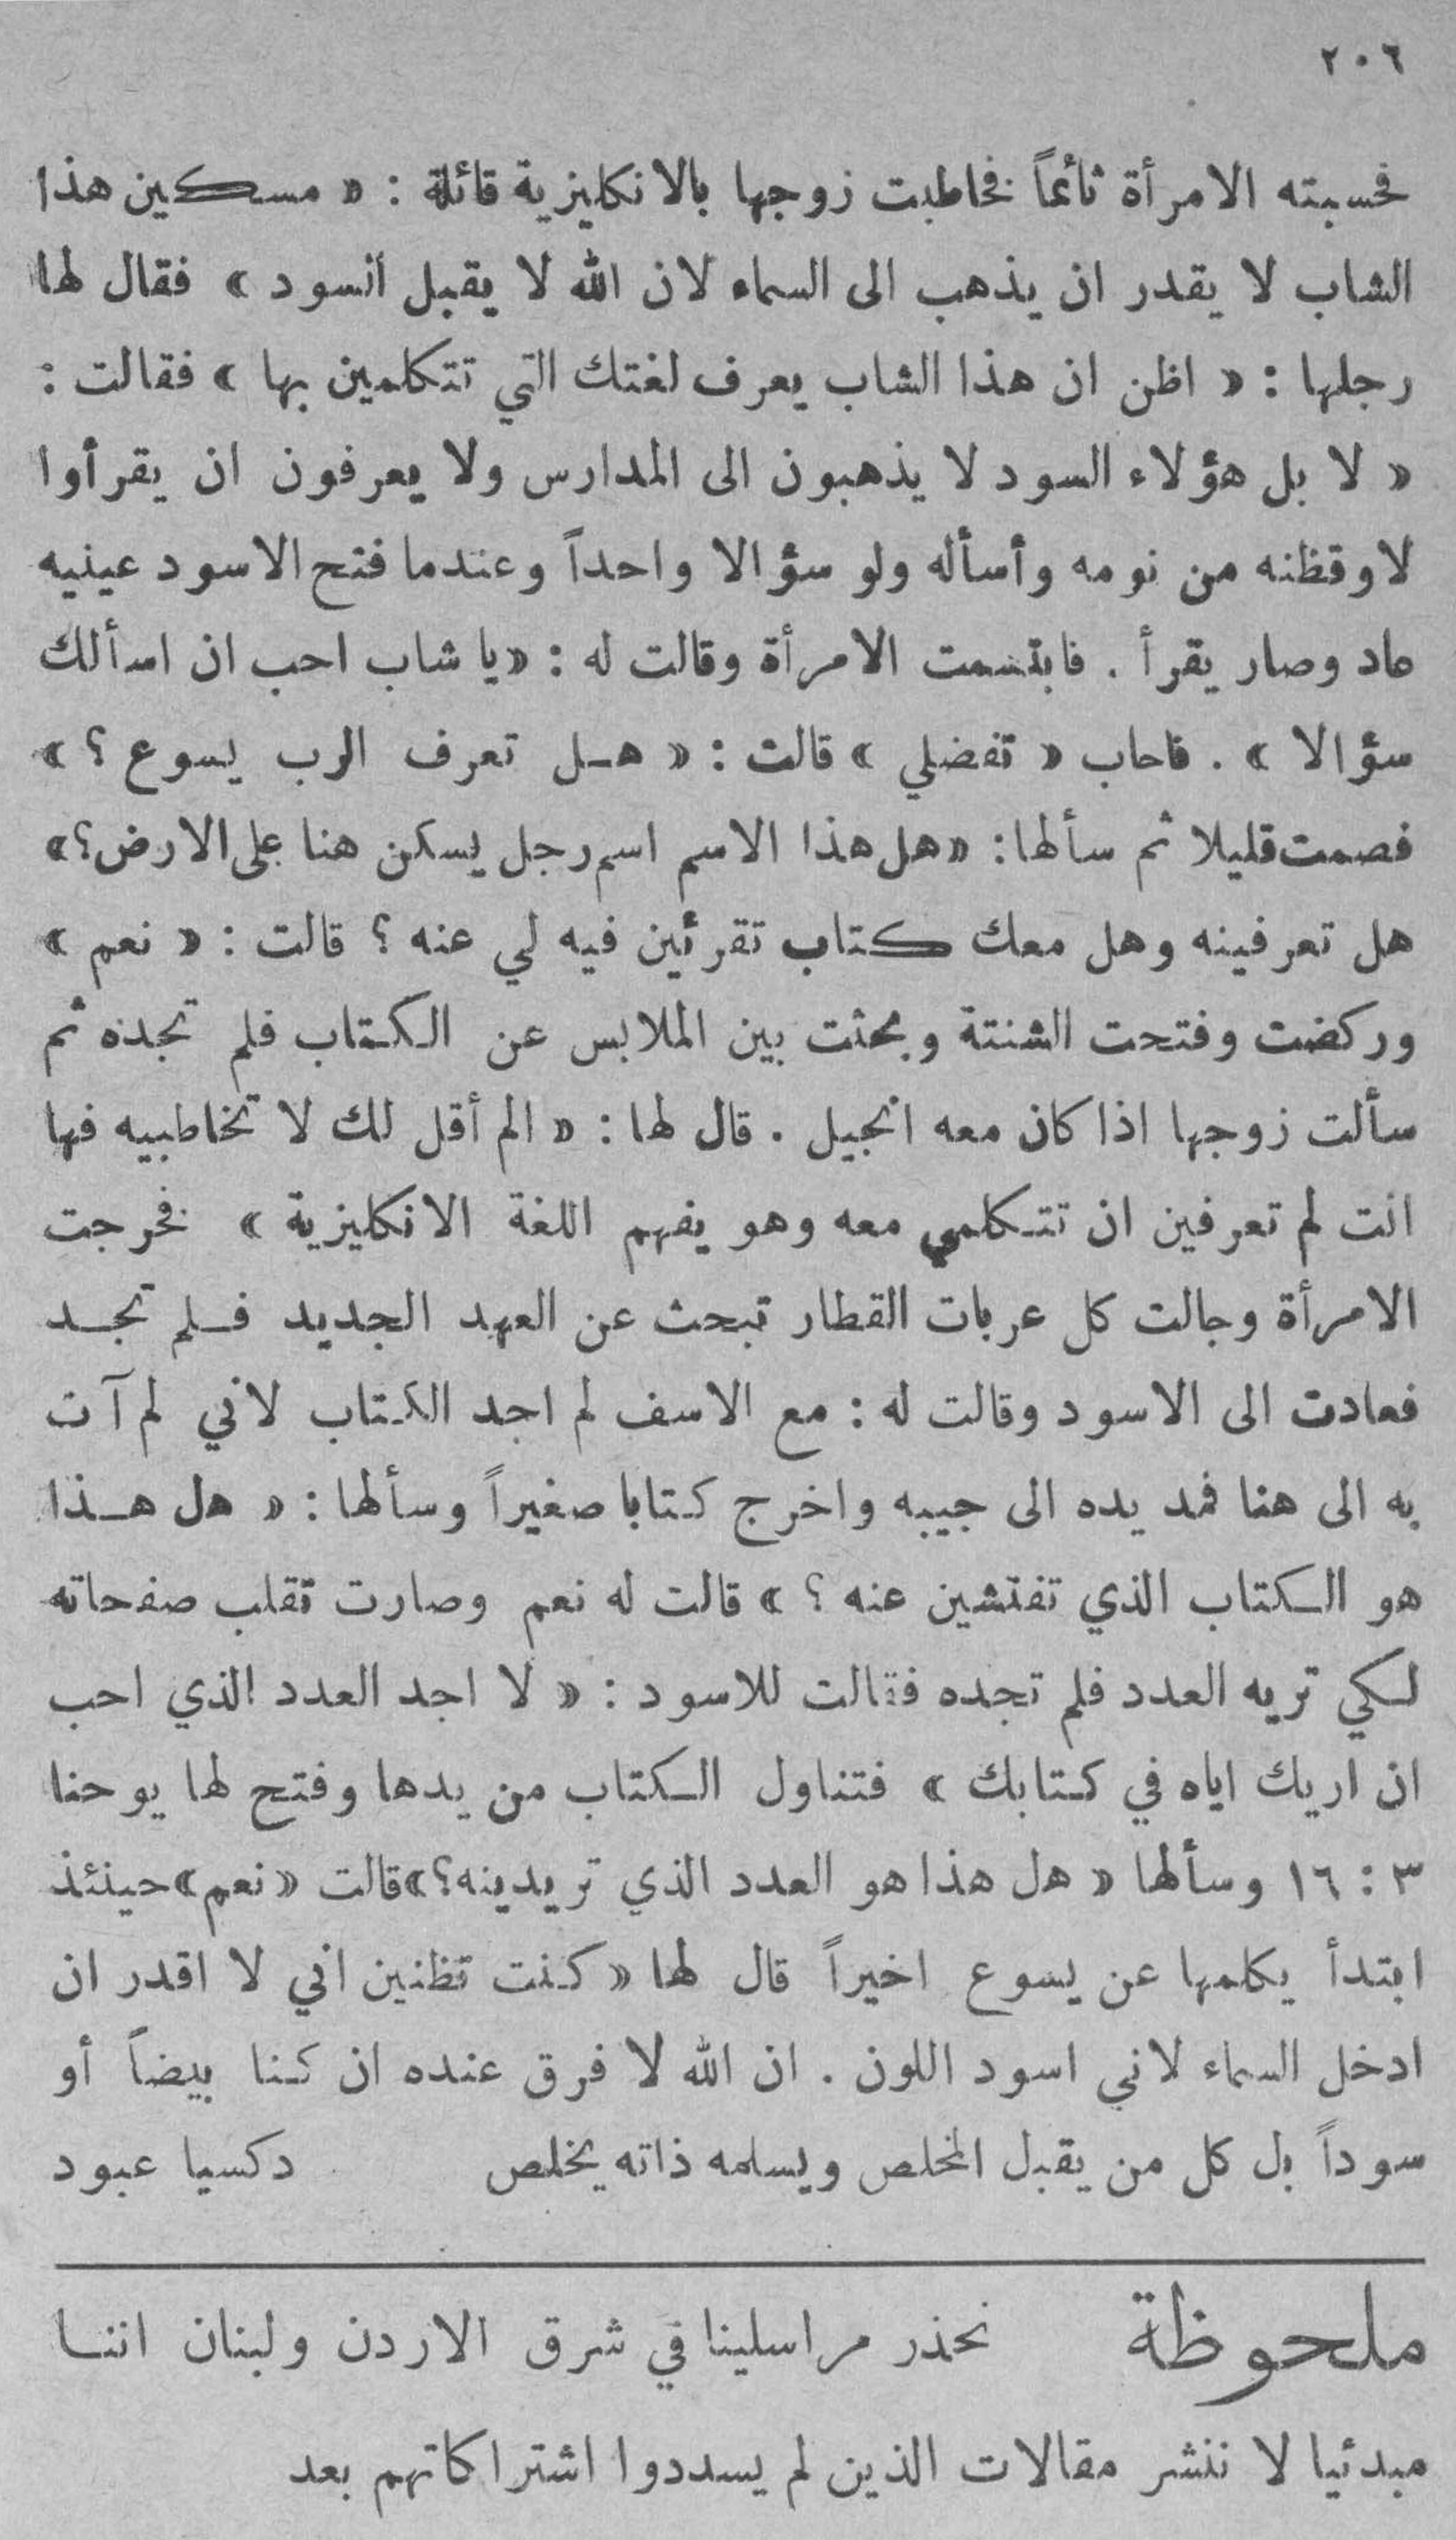 ٢٠٦
فحسبته الامرأة نائماً فخاطبت زوجها بالانكليزية قائلة : « مسكين هذا
الشاب لا يقدر ان يذهب الى السماء لان الله لا يقبل السود » فقال لها
رجلها : « اظن ان هذا الشاب يعرف لغتك التي تتكلمين بها » فقالت :
« لا بل هؤلاء السود لا يذهبون الى المدارس ولا يعرفون ان يقرأوا
لاوقظنه من نومه وأسأله ولو سؤالا واحداً وعندما فتح الاسود عينيه
عاد وصار يقرأ . فابتسمت الامرأة وقالت له : « يا شاب احب ان اسألك
سؤالا » . فاحاب « تفضلي » قالت : « هل تعرف الرب يسوع ؟ »
فصمت قليلا ثم سألها : « هل هذا الاسم اسم رجل يسكن هنا على الارض ؟ »
هل تعرفينه وهل معك كتاب تقرئين فيه لي عنه ؟ قالت : « نعم »
وركضت وفتحت الشنتة وبحثت بين الملابس عن الكتاب فلم تجده ثم
سألت زوجها اذا كان معه انجيل . قال لها : « الم أقل لك لا تخاطبيه فها
انت لم تعرفين ان تتكلمي معه وهو يفهم اللغة الانكليزية » فخرجت
الامرأة وجالت كل عربات القطار تبحث عن العهد الجديد فلم تجد
فعادت الى الاسود وقالت له : مع الاسف لم اجد الكتاب لاني لم آت
به الى هنا فمد يده الى جيبه واخرج كتابا صغيراً وسألها : « هل هذا
هو الكتاب الذي تفتشين عنه ؟ » قالت له نعم وصارت تقلب صفحاته
لكي تريه العدد فلم تجده فقالت للاسود : « لا اجد العدد الذي احب
ان اريك اياه في كتابك » فتناول الكتاب من يدها وفتح لها يوحنا
٣ : ١٦ وسألها « هل هذا هو العدد الذي تريدينه ؟ » قالت « نعم » حينئذ
ابتدأ يكلمها عن يسوع اخيراً قال لها « كنت تظنين اني لا اقدر ان
ادخل السماء لاني اسود اللون . ان الله لا فرق عنده ان كنا بيضاً أو
سوداً بل كل من يقبل المخلص ويسلمه ذاته يخلص دكسيا عبود
ملحوظة نحذر مراسلينا في شرق الاردن ولبنان اننا
مبدئيا لا ننشر مقالات الذين لم يسددوا اشتراكاتهم بعد